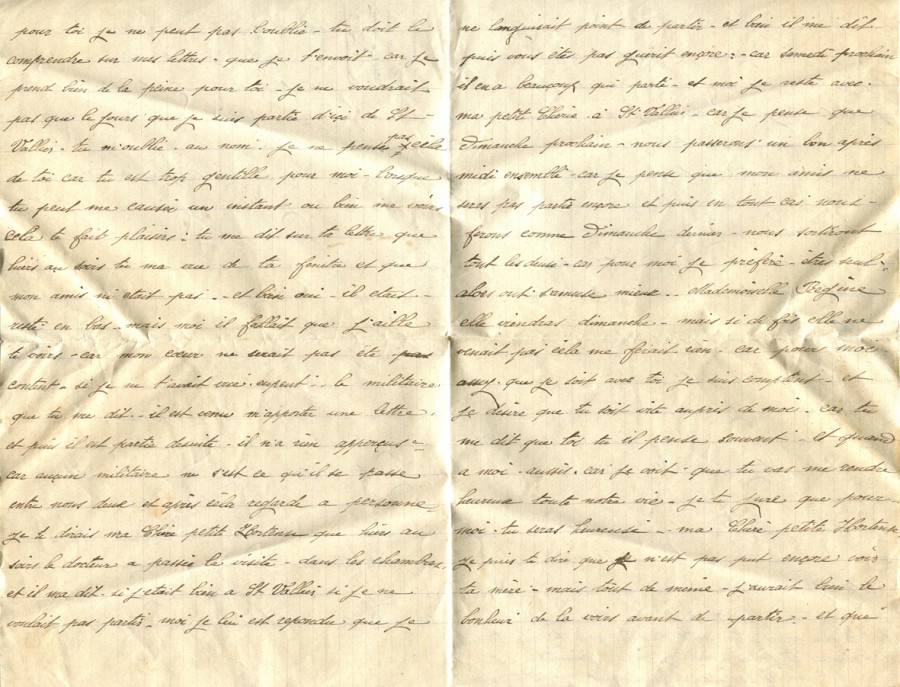 pour toi je ne peut pas l'oublié - tu doit le
comprendre sur mes lettres - que je t'envoit car je
prend bien de la peine pour toi - je ne voudrait
pas que le jours que je suis partie d'ici de St -
Vallier - tu m'oublie - au nomi - je ne pense pas cela
de toi car tu est trop gentille pour moi - lorsque
tu peut me causer un instant ou bien me voire
cela te fait plaisirs : tu me dit sur ta lettre que
hiers au soirs tu ma vue de ta fenetre et que
mon amis n'était pas - et bien oui - il etait -
resté en bas - mais moi il fallait que j'aille
te voirs - car mon cœur ne serait pas ete
content - si je ne t'avait vue - le militaire
que tu me dit - il est venu m'apporter une lettre,
et puis il est partie desuite - il n'a rien apperçus -
car aucun militaire ne s'est ce qu'il se passe
entre nous deux et après cela regarde a personne
Je te dirais ma Chère petite Hortense que hiers au
soirs le docteur a passée la visite - dans les chambres
et il ma dit - si j'etait bien a St Vallier si je ne
voulait pas partir - moi je lui est repondu que je
ne languisait point de partir - et bien il me dit
puis vous êtes pas guérit ençore : - car samedi prochain
il en a beaucoup qui parte - et moi je reste avec -
ma petit Chérie - à St Vallier - car je pense que
Dimanche prochain - nous passerons un bon après
midi ensemble - car je pense que mon amis ne
seras pas partie ençore et puis en tout cas nous -
ferons comme Dimanche dernier - nous sortiront
tout les deux - car pour moi je préfère - êtres seul -
alors ont s'amuse mieux - Mademoiselle Regine
elle viendras dimanche - mais si de fois elle ne
venait pas cela me ferait rien - car pour moi
assez que je soit avec toi je suis comptent - et
je désire que tu soit vite auprès de moi - car tu
me dit que toi tu il pense souvent - et quand
a moi - aussis - car je voit que tu vas me rendre
heureux toute notre vie - je te jure que pour -
moi - tu seras heureuse - ma Chère petite Hortense
Je puis te dire que je n'est pas put ençore voir
ta mère - mais tout de même - j'aurait bien le
bonheur de la voirs avant de partir - et que